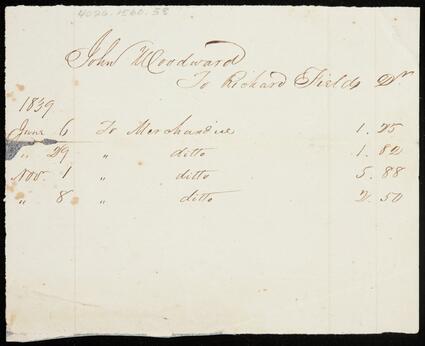 4026.1560.38
John Woodward
To Richard Fields Dr
1839
June 6 To Merchandise 1.25
„ 29 „ ditto 1.82
Nov. 1 „ ditto 5.88
„ 8 „ ditto 2.50